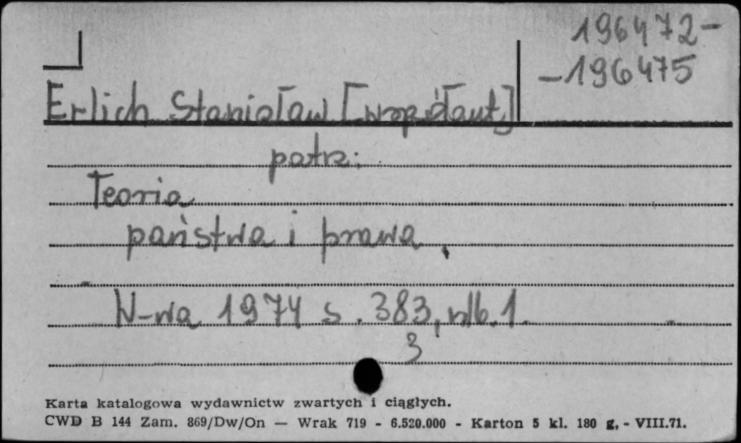 196472-
-196475
Erlich Stanisław [współaut.]
patrz:
Teoria
państwa i prawa.
W-wa 1974 s. 383, nlb. 1.
3
Karta katalogowa wydawnictw zwartych i ciągłych.
CWD B 144 Zam. 869/Dw/On — Wrak 719 - 6.520.000 - Karton 5 kl. 180 g, - VIII.71.